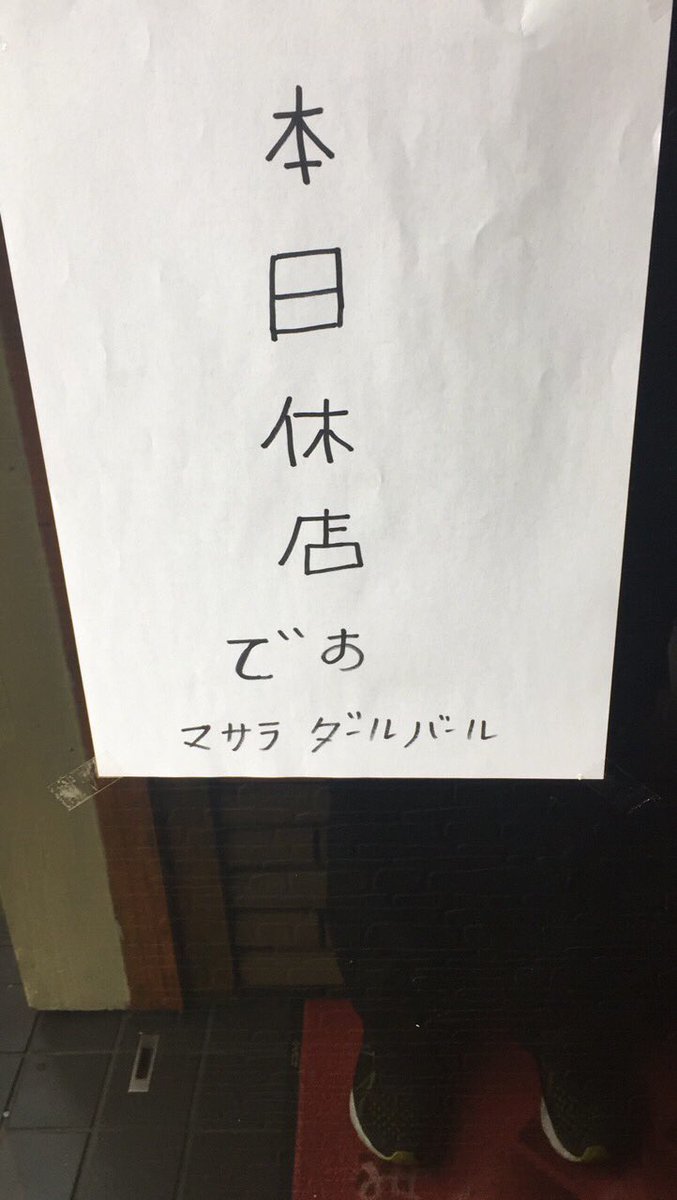 本日休店
でお
マサラ ダールバール